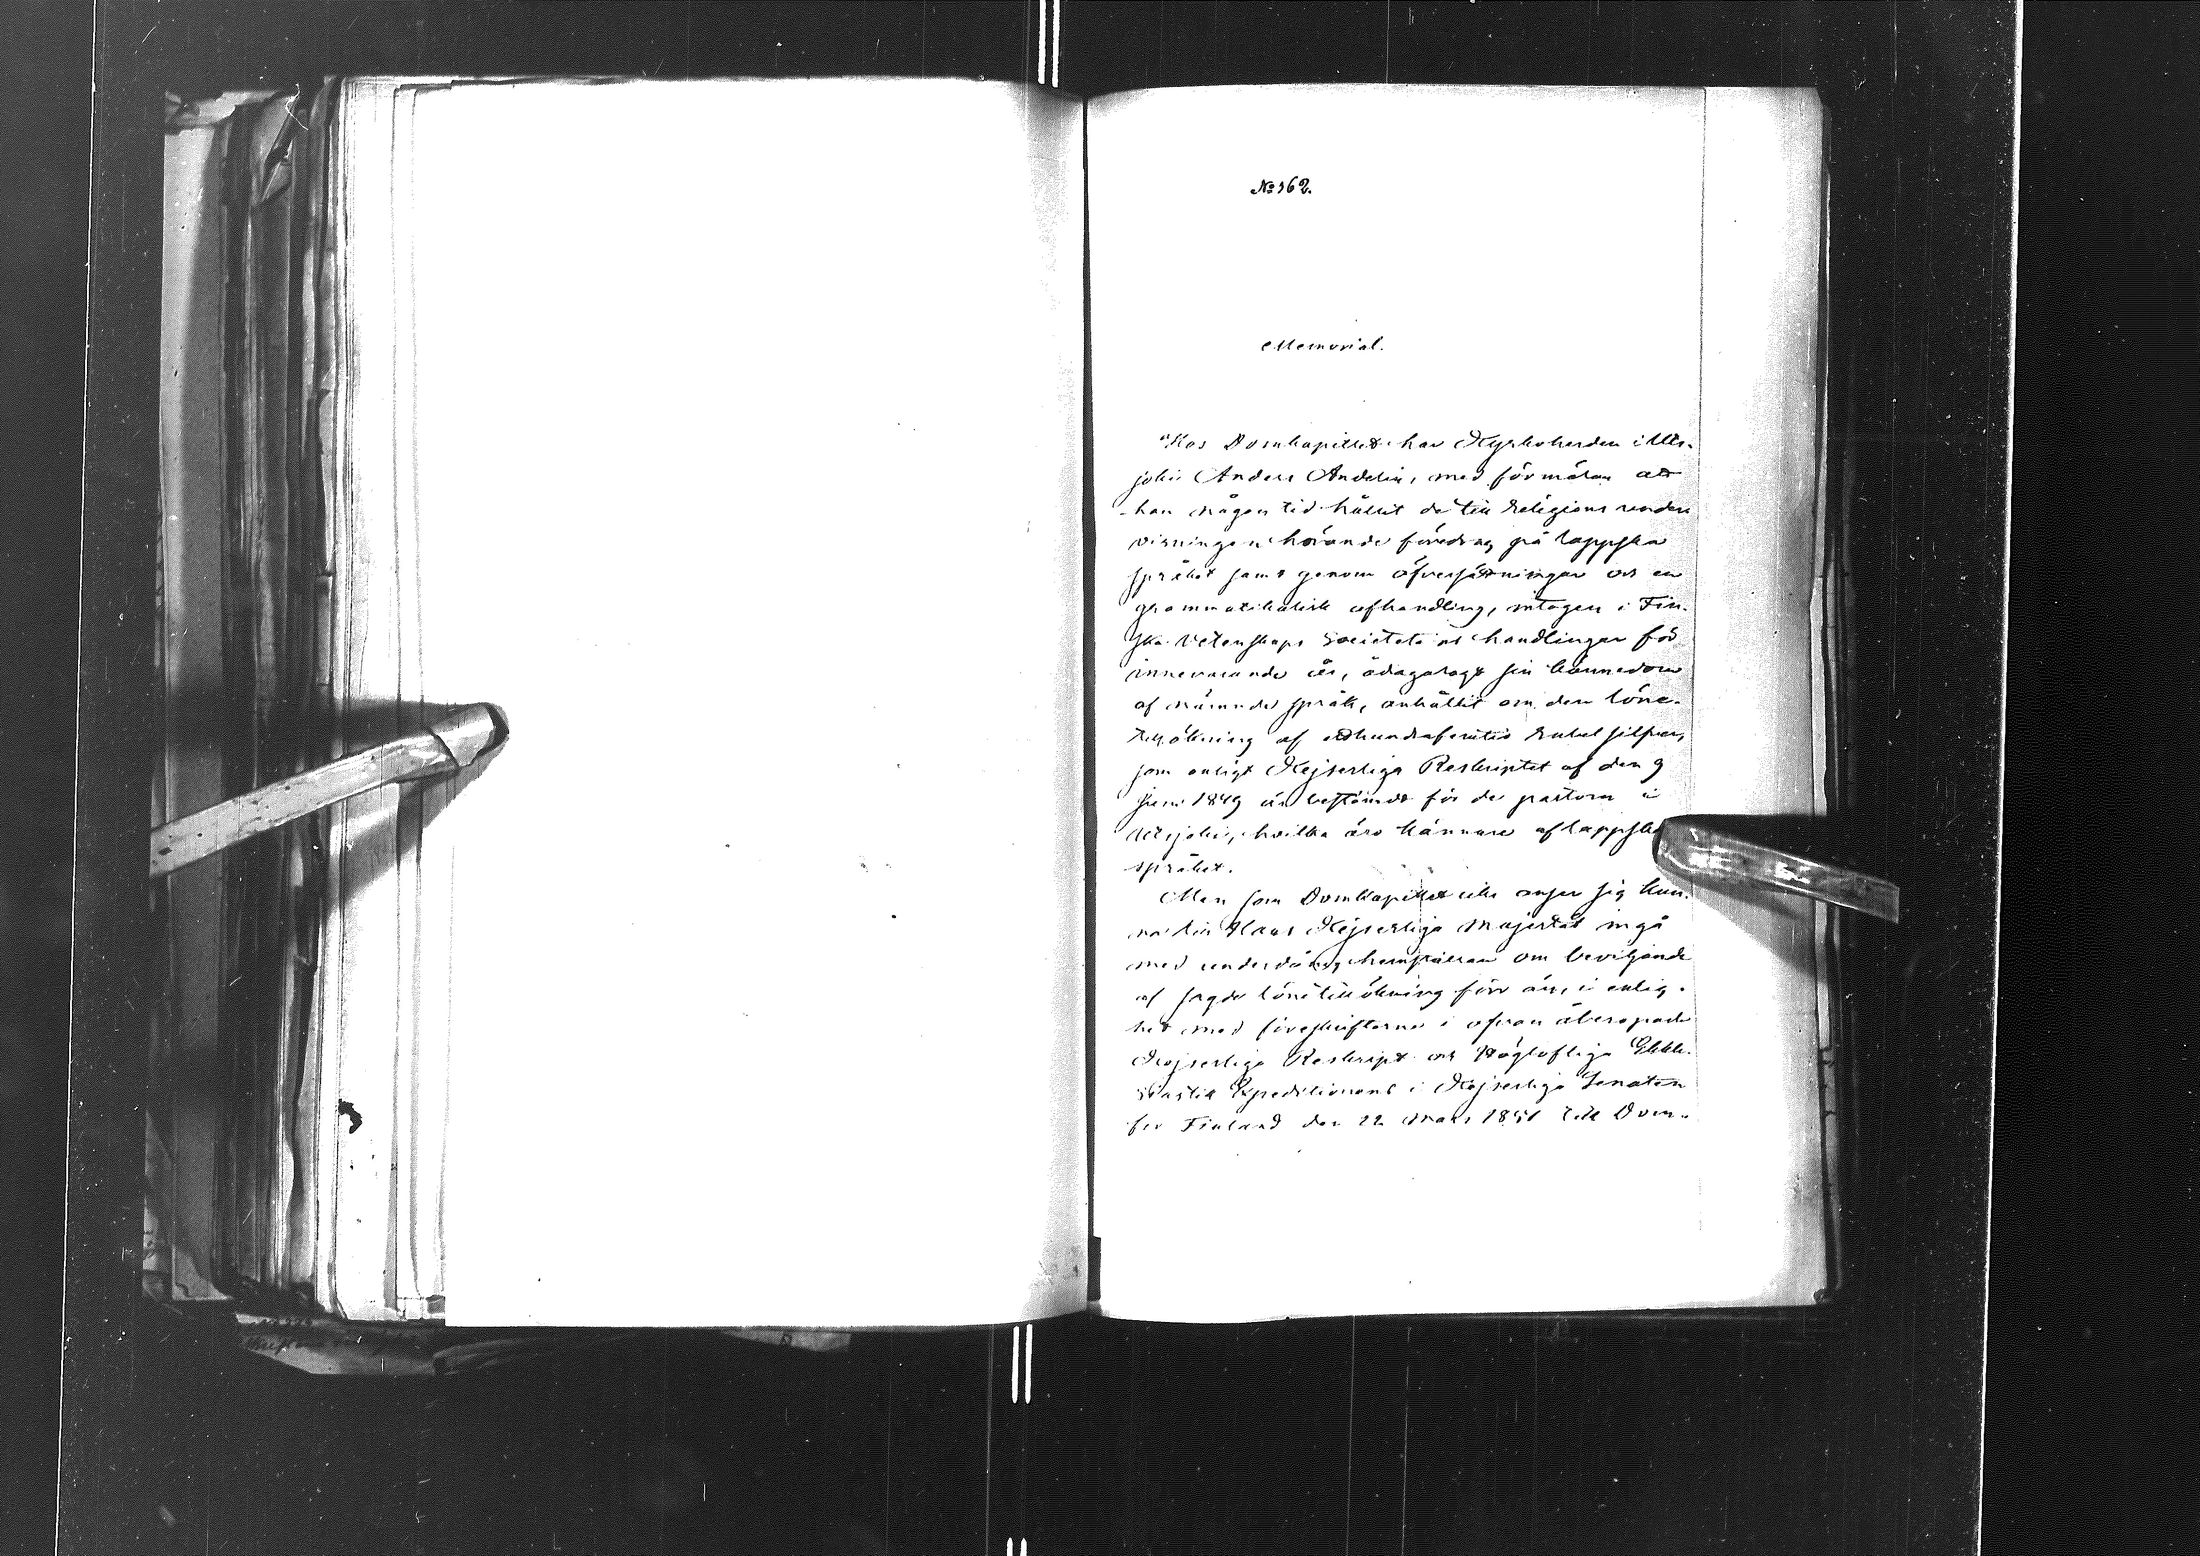 No 162.
Memorial.
"Hos Domkapitlet har Kyrkoherden i Uts-
joki Anders Andelin, med förmälan att
han någon tid hållit de till religions under
visningen hörande föredrag på lappska
språket samt genom öfversättningar och en
grammatikalisk afhandling, intagen i Fin-
ska Vetenskaps Societetens handlingar för
innevarande år, ådagalagt sin kännedom
af nämnde språk, anhållit om den löne-
tillökning af etthundrafemtio rubel silfver,
som enligt Kejserliga Reskriptet af den 9
Juni 1849 är bestämdt för de pastorer i
Utsjoki, hvilka äro kännare af lappska
språket.
Men som Domkapitlet icke anser sig kun-
na till Hans Kejserliga Majestät ingå
med underdånig hemställan om beviljande
af sagde lönetillökning förr än, i enlig-
het med föreskrifterna i ofvan åberopade
Kejserliga Reskript och Högloflige Ekkle-
siastik Expeditionens i Kejserliga Senaten
för Finland den 22 Mars 1851 till Dom-